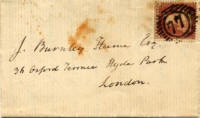 J. Burnley Hume Esq.
36 Oxford Terrace Hyde Park
London.
77